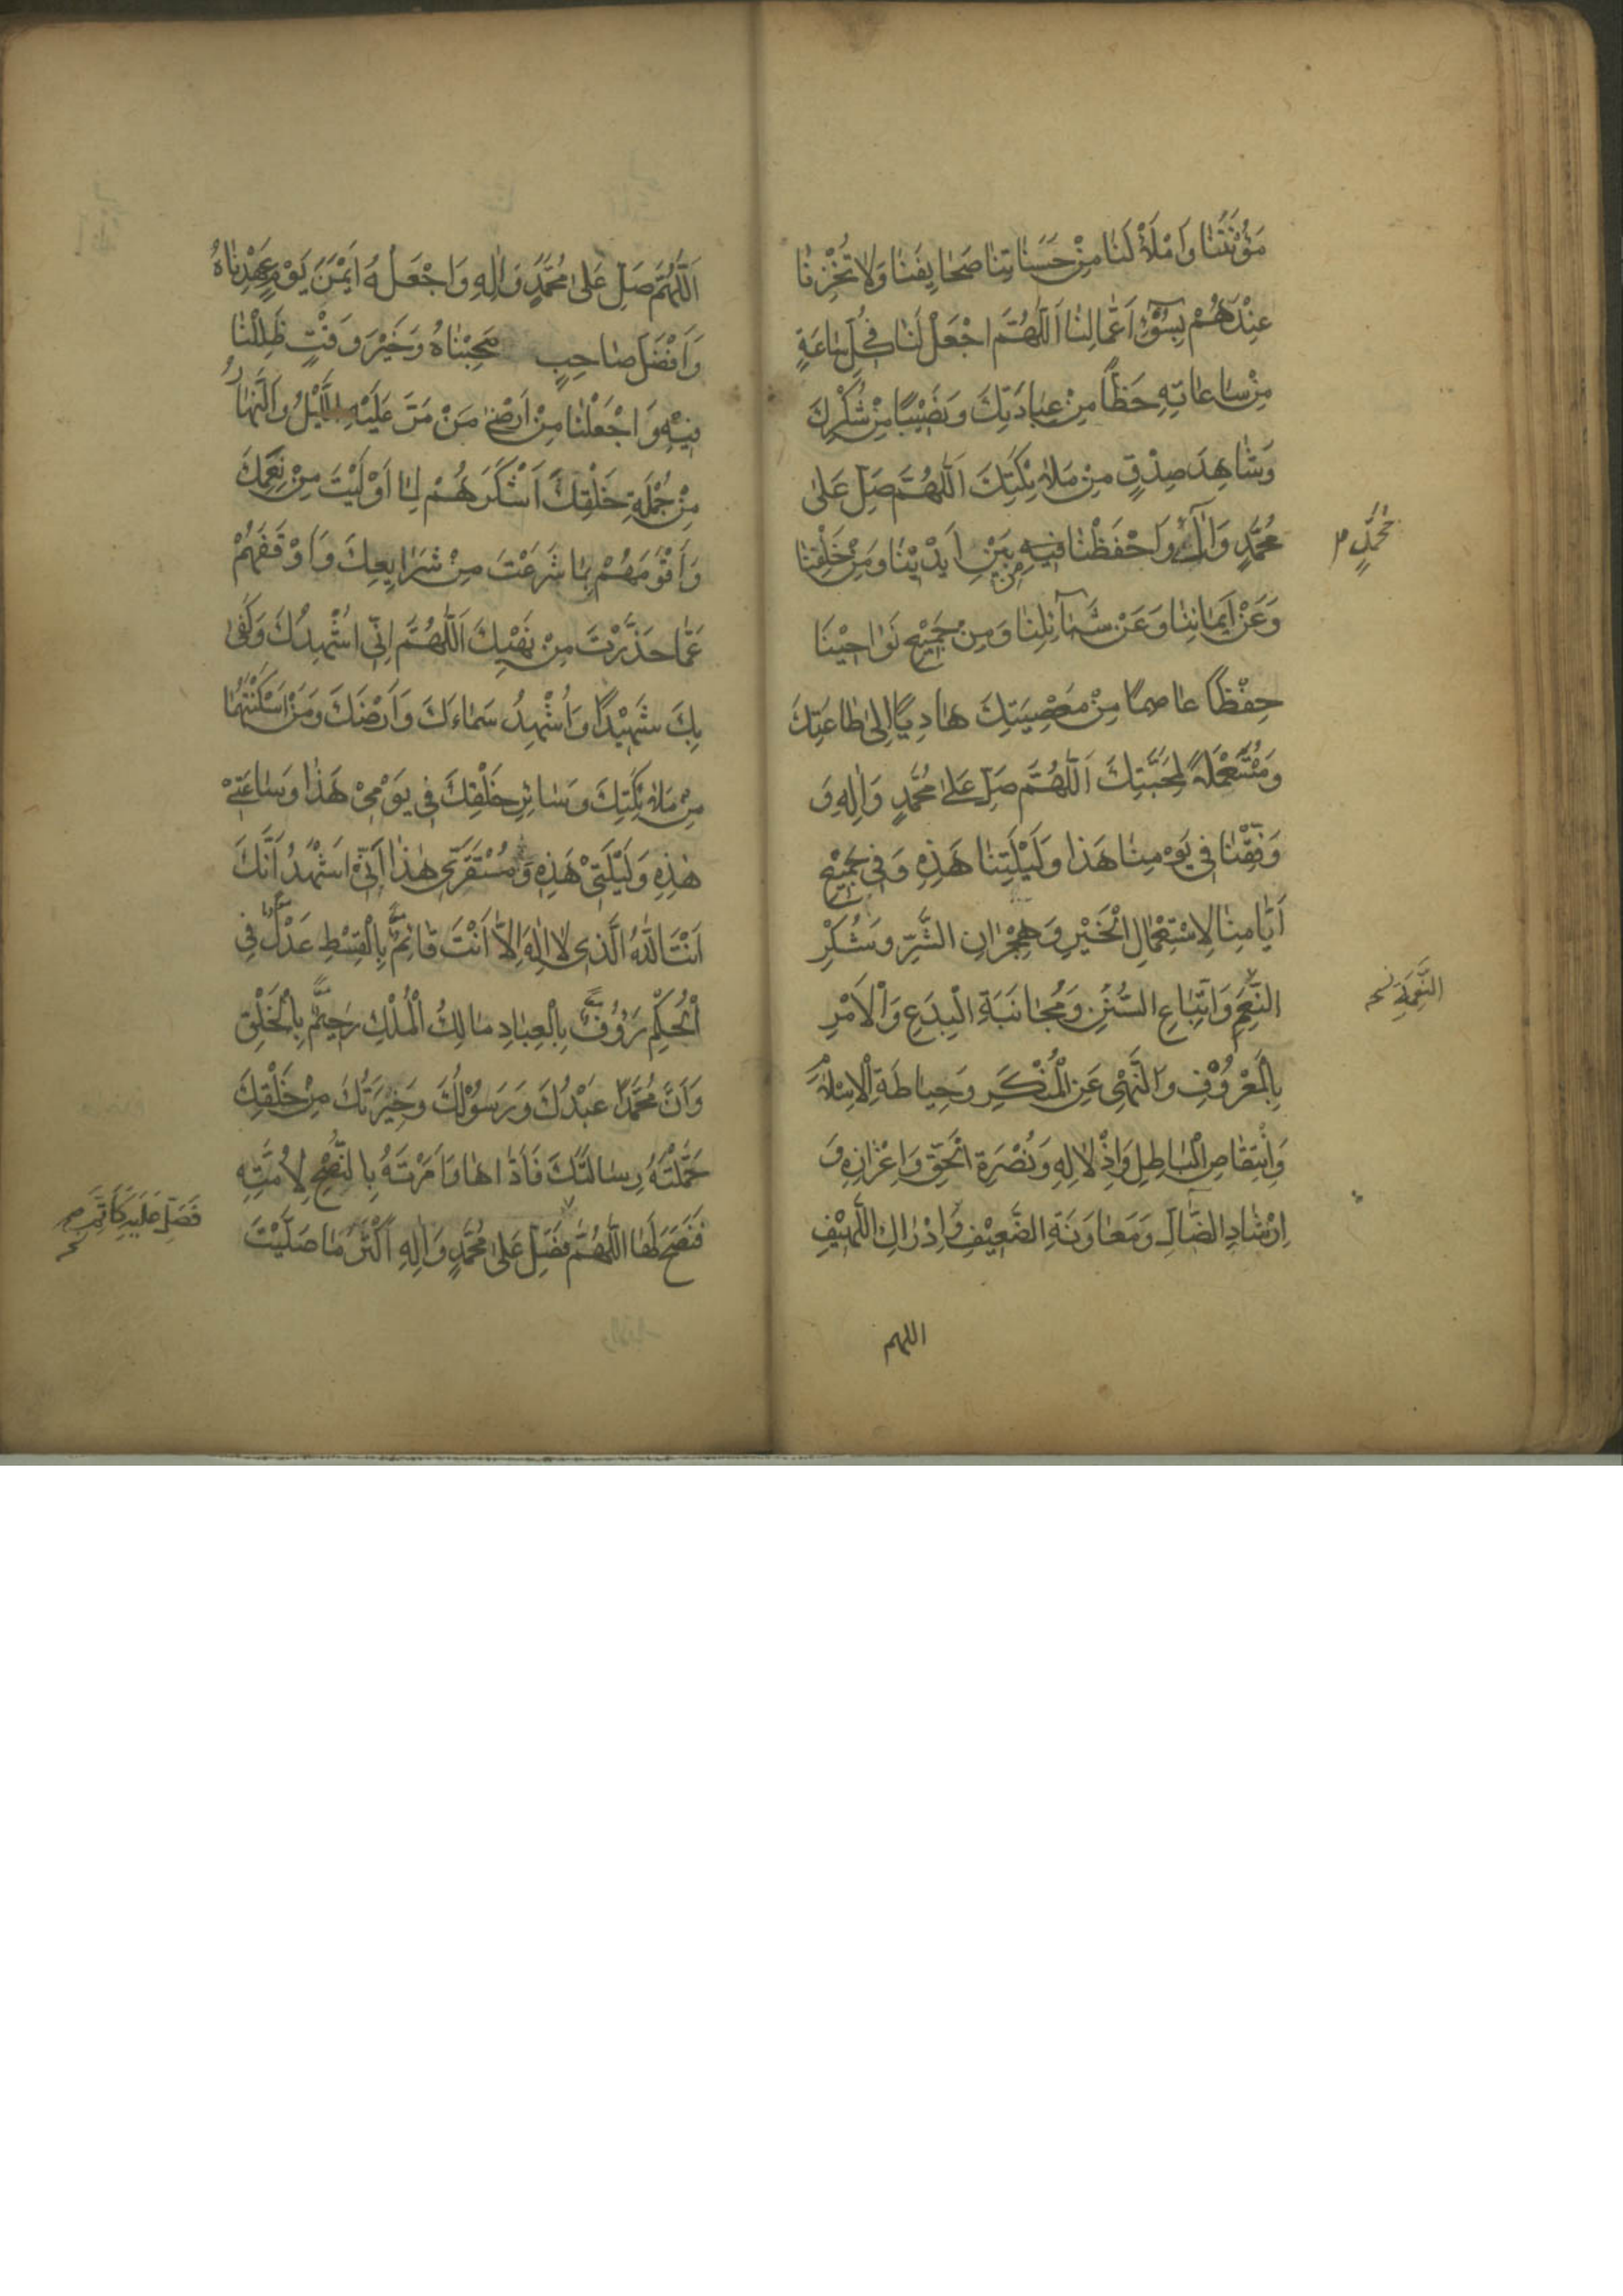 مَؤُنَتَنَا وَامْلَأْ لَنَا مِنْ حَسَنَاتِنَا صَحَايِفَنَا وَلَا تُخْزِنَا
عِنْدَهُمْ بِسُوْءِ اَعْمَالِنَا اَللّٰهُمَّ اجْعَلْ لَنَا فِي كُلِّ سَاعَةٍ
مِنْ سَاعَاتِهِ حَظًّا مِنْ عِبَادَتِكَ وَنَصِيْبًا مِنْ شُكْرِكَ
وَشَاهِدَ صِدْقٍ مِنْ مَلَائِكَتِكَ اَللّٰهُمَّ صَلِّ عَلٰى
مُحَمَّدٍ وَاٰلِ وَاحْفَظْنَا فِيهِ مِنْ بَيْنِ اَيْدِيْنَا وَمِنْ خَلْفِنَا
مُحَمَّدٍ
وَعَنْ اَيْمَانِنَا وَعَنْ شَمَآئِلِنَا وَمِنْ جَمِيْعِ نَوَاحِيْنَا
حِفْظًا عَاصِمًا مِنْ مَعْصِيَتِكَ هَادِيًا اِلٰى طَاعَتِكَ
وَمُسْتَعْمَلَةً لِمَحَبَّتِكَ اَللّٰهُمَّ صَلِّ عَلٰى مُحَمَّدٍ وَاٰلِهِ وَ
وَفِّقْنَا فِي يَوْمِنَا هَذَا وَلَيْلَتِنَا هَذِهِ وَفِي جَمِيْعِ
اَيَّامِنَا لِاسْتِعْمَالِ الْخَيْرِ وَهِجْرَانِ الشَّرِّ وَشُكْرِ
النِّعَمِ وَاتِّبَاعِ السُّنَنِ وَمُجَانَبَةِ الْبِدَعِ وَالْاَمْرِ
النِّعْمَةِ نسخه
بِالْمَعْرُوْفِ وَالنَّهْيِ عَنِ الْمُنْكَرِ وَحِيَاطَةِ الْاِسْلَامِ
وَانْتِقَاصِ الْبَاطِلِ وَاِذْلَالِهِ وَنُصْرَةِ الْحَقِّ وَاِعْزَازِهِ وَ
اِرْشَادِ الضَّالِّ وَمَعَاوَنَةِ الضَّعِيْفِ وَاِدْرَاكِ اللَّهِيْفِ
اللهم
اَللّٰهُمَّ صَلِّ عَلٰى مُحَمَّدٍ وَاٰلِهِ وَاجْعَلْهُ اَيْمَنَ يَوْمٍ عَهِدْنَاهُ
وَاَفْضَلَ صَاحِبٍ صَحِبْنَاهُ وَخَيْرَ وَقْتٍ ظَلِلْنَا
فِيْهِ وَاجْعَلْنَا مِنْ اَرْضٰى مَنْ مَرَّ عَلَيْهِ اللَّيْلُ وَالنَّهَارُ
مِنْ جُمْلَةِ خَلْقِكَ اَشْكَرَهُمْ لِمَا اَوْلَيْتَ مِنْ نِعَمِكَ
وَاَقْوَمَهُمْ بِمَا شَرَعْتَ مِنْ شَرَايِعِكَ وَاَوْقَفَهُمْ
عَمَّا حَذَّرْتَ مِنْ نَهْيِكَ اَللّٰهُمَّ اِنِّي اُشْهِدُكَ وَكَفٰى
بِكَ شَهِيْدًا وَاُشْهِدُ سَمَاءَكَ وَاَرْضَكَ وَمَنْ اَسْكَنْتَهُمَا
مِنْ مَلَائِكَتِكَ وَسَائِرِ خَلْقِكَ فِي يَوْمِيْ هَذَا وَسَاعَتِيْ
هٰذِهِ وَلَيْلَتِيْ هَذِهِ وَمُسْتَقَرِّي هٰذَا اَنِّيْ اَشْهَدُ اَنَّكَ
اَنْتَ اللّٰهُ الَّذِي لَا اِلٰهَ اِلَّا اَنْتَ قَائِمٌ بِالْقِسْطِ عَدْلٌ فِي
الْحُكْمِ رَؤُوْفٌ بِالْعِبَادِ مَالِكُ الْمُلْكِ رَحِيْمٌ بِالْخَلْقِ
وَاَنَّ مُحَمَّدًا عَبْدُكَ وَرَسُوْلُكَ وَخِيَرَتُكَ مِنْ خَلْقِكَ
حَمَّلْتَهُ رِسَالَتَكَ فَاَدَّاهَا وَاَمَرْتَهُ بِالنُّصْحِ لِاُمَّتِهِ
فَنَصَحَ لَهَا اللّٰهُمَّ فَصَلِّ عَلٰى مُحَمَّدٍ وَاٰلِهِ اَكْثَرَ مَا صَلَّيْتَ
فَصَلِّ عَلَيْهِ كَاَتَمِّ